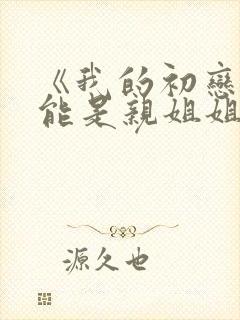 《我的初戀
能是親姐姐
源久也